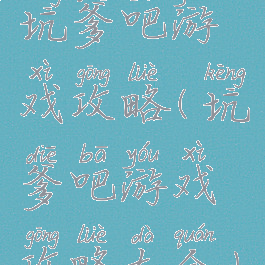 坑爹吧游
xì gōng lüè kēng
戏攻略(坑
diē bā yóu xì
爹吧游戏
gōng lüè dà quán
攻略大全)